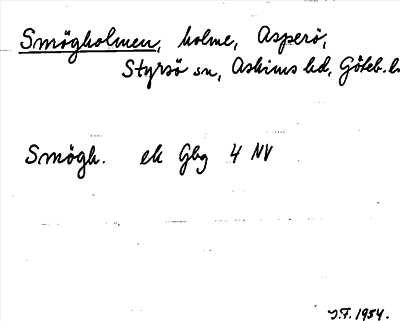 Smögholmen, holme, Asperö,
Styrsö sn, Askims hd, Göteb. l.
Smögh. ek Gbg 4 NV
J.F. 1954.